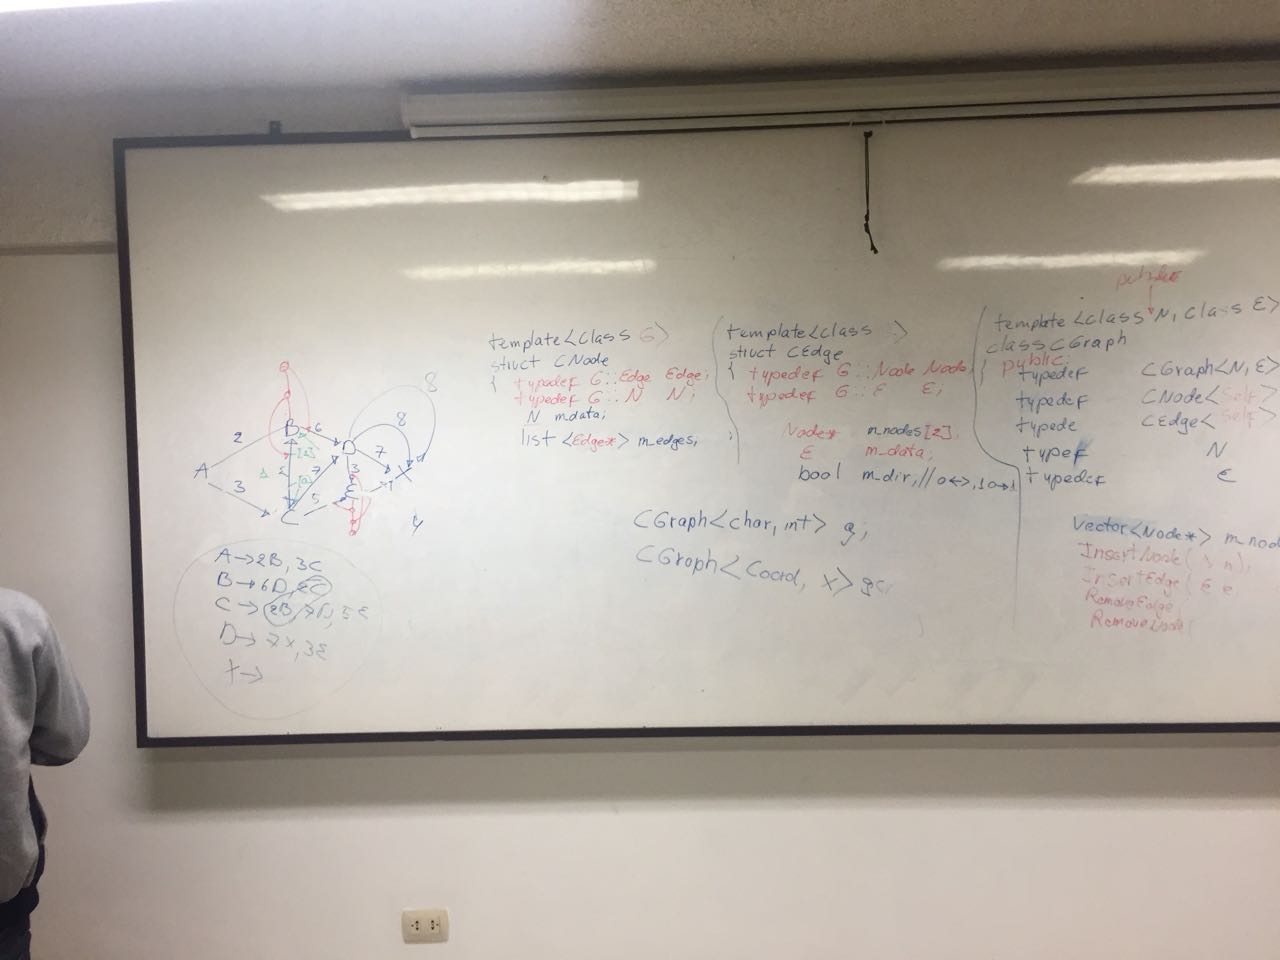 8
8
B
6
D
2
[2]
7
A
1
2
7
X
3
3
[0]
E
C
5
4
A→2B, 3C
B→6D, 2C
C→2B, 7D, 5E
D→7X, 3E
template<class G>
struct CNode
{ typedef G::Edge Edge;
typedef G::N N;
N m_data;
list <Edge*> m_edges;
template<class >
struct CEdge
{ typedef G::Node Node;
typedef G::E E;
Node* m_nodes[2];
E m_data;
bool m_dir; // 0↔, 1→
CGraph<char, int> g;
CGraph<Coord, x> gc;
template <class N, class E>
class CGraph
{ public:
typedef CGraph<N, E>
typedef CNode<Self>
typede CEdge<Self>
typef N
typedef E
vector<Node*> m_nod
InsertNode( n);
InsertEdge( E e
RemoveEdge(
RemoveNode(